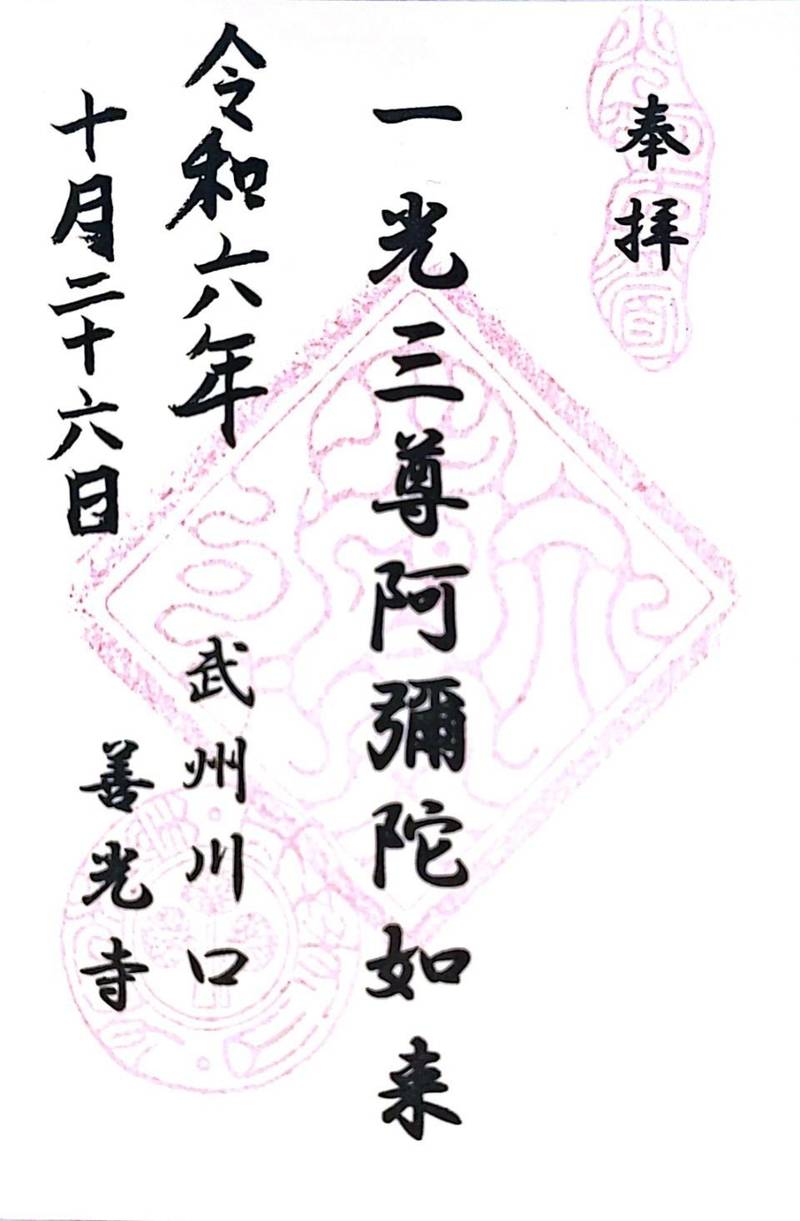 奉拝
一光三尊阿彌陀如来
令和六年
十月二十六日
武州川口
善光寺